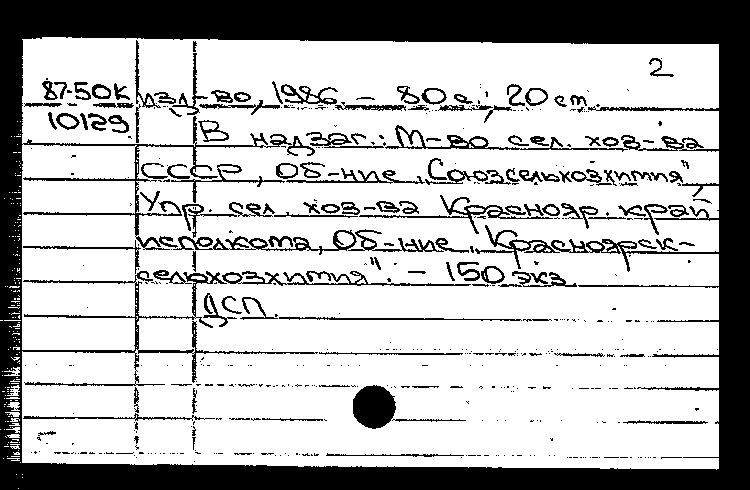 2
87-50К изд-во, 1986. – 80 с.; 20 см.
10129 В надзаг.: М-во сел. хоз-ва
СССР, Об-ние „Союзсельхозхимия",
Упр. сел. хоз-ва Краснояр. край
исполкома, Об-ние „Красноярск-
сельхозхимия". – 150 экз.
ДСП.